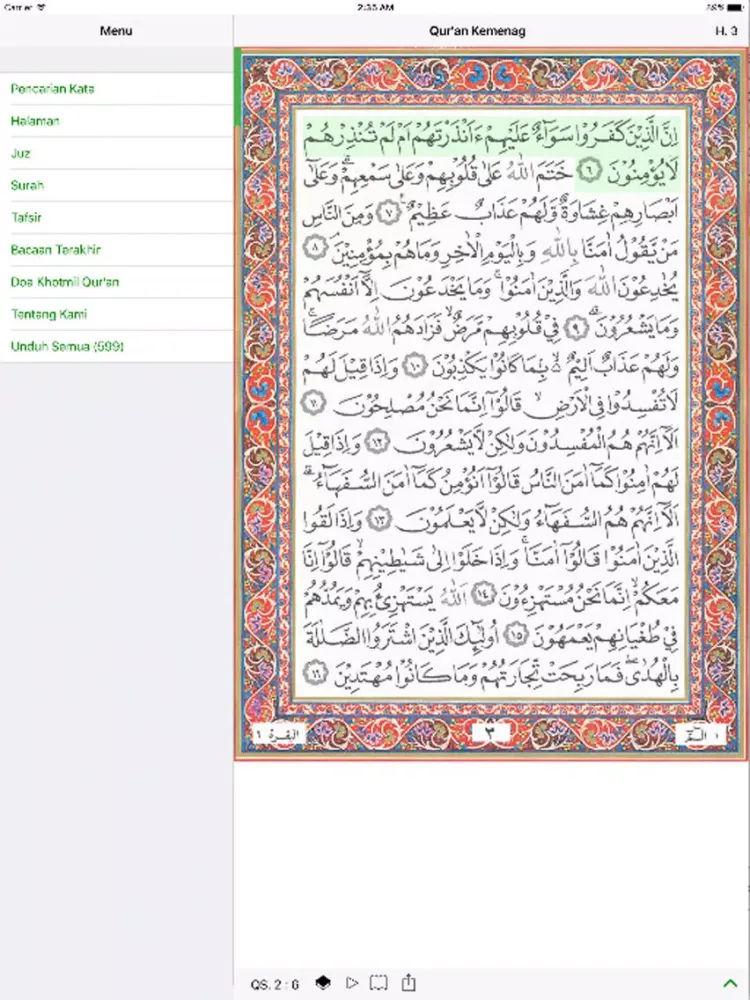 Carrier
2:35 AM
Menu
Qur'an Kemenag
H. 3
Pencarian Kata
Halaman
Juz
Surah
Tafsir
Bacaan Terakhir
Doa Khotmil Qur'an
Tentang Kami
Unduh Semua (599)
اِنَّ الَّذِيْنَ كَفَرُوْا سَوَاۤءٌ عَلَيْهِمْ ءَاَنْذَرْتَهُمْ اَمْ لَمْ تُنْذِرْهُمْ
لَا يُؤْمِنُوْنَ ٦ خَتَمَ اللّٰهُ عَلٰى قُلُوْبِهِمْ وَعَلٰى سَمْعِهِمْۗ وَعَلٰٓى
اَبْصَارِهِمْ غِشَاوَةٌ وَّلَهُمْ عَذَابٌ عَظِيْمٌ ٧ وَمِنَ النَّاسِ
مَنْ يَّقُوْلُ اٰمَنَّا بِاللّٰهِ وَبِالْيَوْمِ الْاٰخِرِ وَمَا هُمْ بِمُؤْمِنِيْنَۘ ٨
يُخٰدِعُوْنَ اللّٰهَ وَالَّذِيْنَ اٰمَنُوْاۚ وَمَا يَخْدَعُوْنَ اِلَّآ اَنْفُسَهُمْ
وَمَا يَشْعُرُوْنَۗ ٩ فِيْ قُلُوْبِهِمْ مَّرَضٌۙ فَزَادَهُمُ اللّٰهُ مَرَضًاۚ
وَلَهُمْ عَذَابٌ اَلِيْمٌ ۢ ەۙ بِمَا كَانُوْا يَكْذِبُوْنَ ١٠ وَاِذَا قِيْلَ لَهُمْ
لَا تُفْسِدُوْا فِى الْاَرْضِۙ قَالُوْٓا اِنَّمَا نَحْنُ مُصْلِحُوْنَ ١١
اَلَآ اِنَّهُمْ هُمُ الْمُفْسِدُوْنَ وَلٰكِنْ لَّا يَشْعُرُوْنَ ١٢ وَاِذَا قِيْلَ
لَهُمْ اٰمِنُوْا كَمَآ اٰمَنَ النَّاسُ قَالُوْٓا اَنُؤْمِنُ كَمَآ اٰمَنَ السُّفَهَاۤءُۗ
اَلَآ اِنَّهُمْ هُمُ السُّفَهَاۤءُ وَلٰكِنْ لَّا يَعْلَمُوْنَ ١٣ وَاِذَا لَقُوا
الَّذِيْنَ اٰمَنُوْا قَالُوْٓا اٰمَنَّاۚ وَاِذَا خَلَوْا اِلٰى شَيٰطِيْنِهِمْۙ قَالُوْٓا اِنَّا
مَعَكُمْۙ اِنَّمَا نَحْنُ مُسْتَهْزِءُوْنَ ١٤ اَللّٰهُ يَسْتَهْزِئُ بِهِمْ وَيَمُدُّهُمْ
فِيْ طُغْيَانِهِمْ يَعْمَهُوْنَ ١٥ اُولٰۤىِٕكَ الَّذِيْنَ اشْتَرَوُا الضَّلٰلَةَ
بِالْهُدٰىۖ فَمَا رَبِحَتْ تِّجَارَتُهُمْ وَمَا كَانُوْا مُهْتَدِيْنَ ١٦
البقرة ٢
٣
QS. 2 : 6